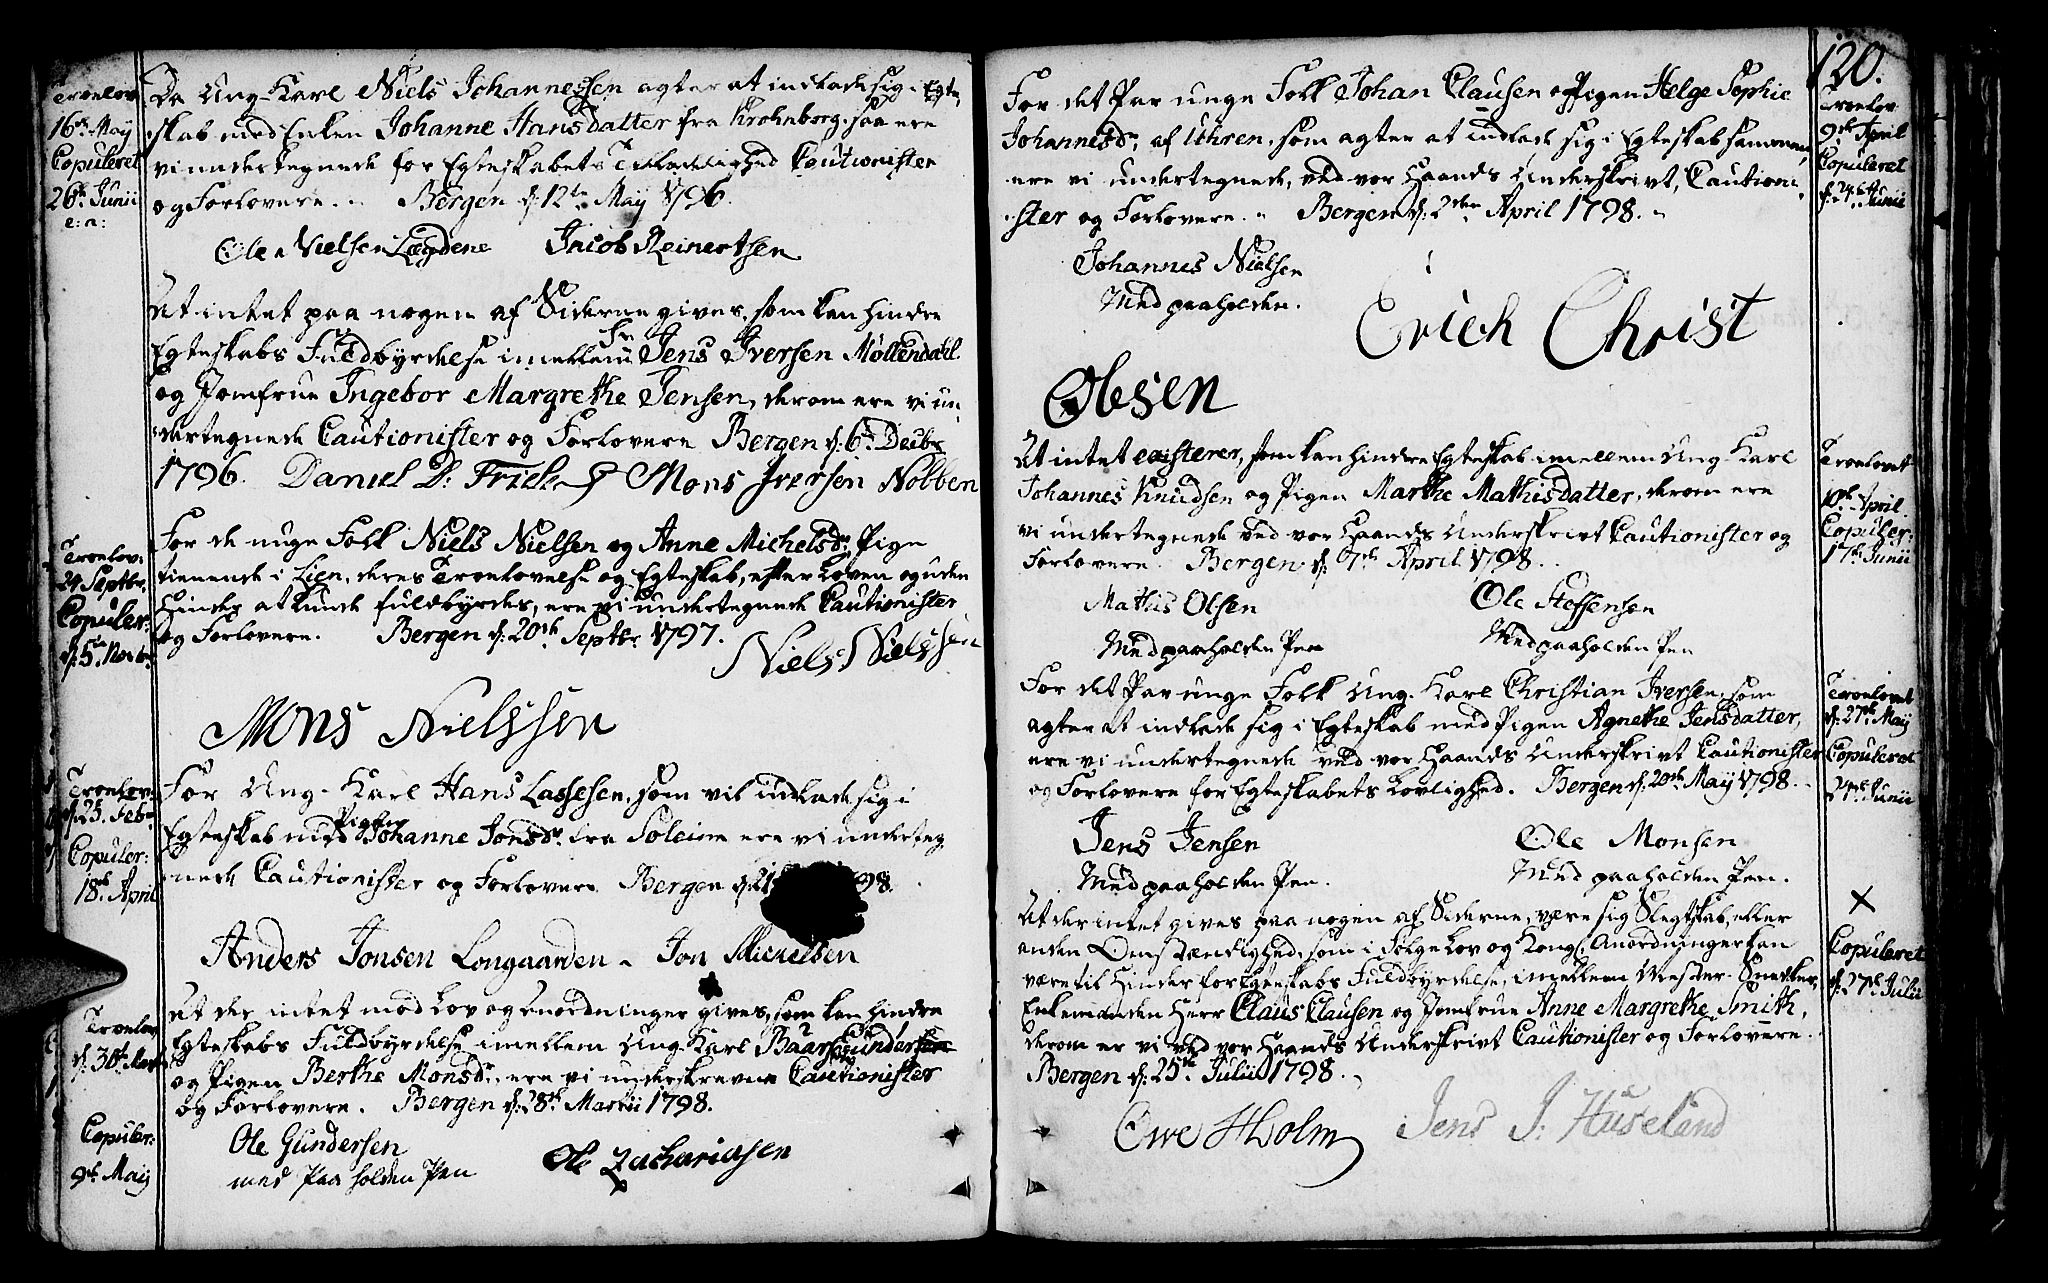 Da Ung-Karl Niels Johannessen agter at indlade sig i Egte,
skab med Enken Johanne Hansdatter fra Krohnborg, saa ere
vi undertegnede for Egteskabets Tilladelighed Cautionister
og Forlovere. Bergen d: 12te May 1796.
Ole Nielsen Lægdene Jacob Reinertsen
Troelov
16de May
Copuleret
26de Junii
e: a:
At intet paa nogen af Siderne gives, som kan hindre
Egteskabs Fuldbyrdelse imellem Sr Jens Iversen Møllendahl
og Jomfrue Ingebor Margrethe Jensen, derom ere vi un,
dertegnede Cautionister og Forlovere Bergen d: 6te Decbr
1796. Daniel D. Friele Mons Iversen Nobben
For de unge Folk Niels Nielsen og Anne Michelsdr Pige
tienende i Lien, deres Troelovelse og Egteskab, efter Loven og uden
Hinder at kunde fuldbyrdes, ere vi undertegnede Cautionister
og Forlovere. Bergen d: 20de Septbr 1797.
Niels Nielssen
Mons Nielssen
Troelov:
24 Septbr.
Copuler:
d: 5te Novbr
For Ung-Karl Hans Lassesen, som vil indlade sig i
Egteskab med Pigen Johanne Jonsdr fra Soleim ere vi underteg
nede Cautionister og Forlovere Bergen d: 21 98.
Anders Jonsen Longaarden Jon Mickelsen
Troelov:
d: 25. Febr
Copuler:
18de April
At der intet mod Lov og Anordninger gives, som kan hindre
Egteskabs Fuldbyrdelse imellem Ung-Karl Baar Gundersen
og Pigen Berthe Monsdr, ere vi underskrevne Cautionister
og Forlovere. Bergen d: 28de Martii 1798.
Ole Gundersen Ole Zachariasen
med Paaholden Pen
Troelov
d: 30te Mart
Copuler:
9de Maij
120.
For det Par unge Folk Johan Clausen og Pigen Helge Sophie
Johannesdr, af Uhren, som agter at indlade sig i Egteskab sammen,
ere vi undertegnede, ved vor Haands Underskrivt, Cautioni,
ster og Forlovere. Bergen d: 2den April 1798.
Johannes Nielsen
Med paaholden.
Erich Christ
Olesen
Troelov
9de April
Copuleret
d: 24de Junii
At intet existerer, som kan hindre Egteskab imellem Ung-Karl
Johannes Knudsen og Pigen Marthe Mathisdatter, derom ere
vi undertegnede ved vor Haands Underskrivt Cautionister og
Forlovere. Bergen d: 7de April 1798.
Matius Olsen Ole Steffensen
Med paaholden Pen Med paaholden Pen
Troelovet
10de April
Copuler:
17de Junii
For det Par unge Folk Ung-Karl Christian Iversen, som
agter at indlade sig i Egteskab med Pigen Agnethe Jensdatter,
ere vi undertegnede ved vor Haands Underskrivt Cautionister
og Forlovere for Egteskabets Lovlighed. Bergen d: 20de May 1798.
Jens Jensen Ole Monsen
Med paaholden Pen. Med paaholden Pen.
Troelovet
d: 27de May
Copuleret
24de Junii
At der intet gives paa nogen af Siderne, være sig Slegtskab, eller
anden Omstændighed, som i Følge Lov og Kongl. Anordninger kan
være til Hinder for Egteskabs Fuldbyrdelse, imellem Mester-Snedker,
Enkemanden Herr Claus Clausen og Jomfrue Anne Margrethe Smith,
derom er vi ved vor Haands Underskrivt Cautionister og Forlovere.
Bergen d: 25de Julii 1798.
Owe Holm Jens J. Huseland
X
Copuleret
d: 27de Julii